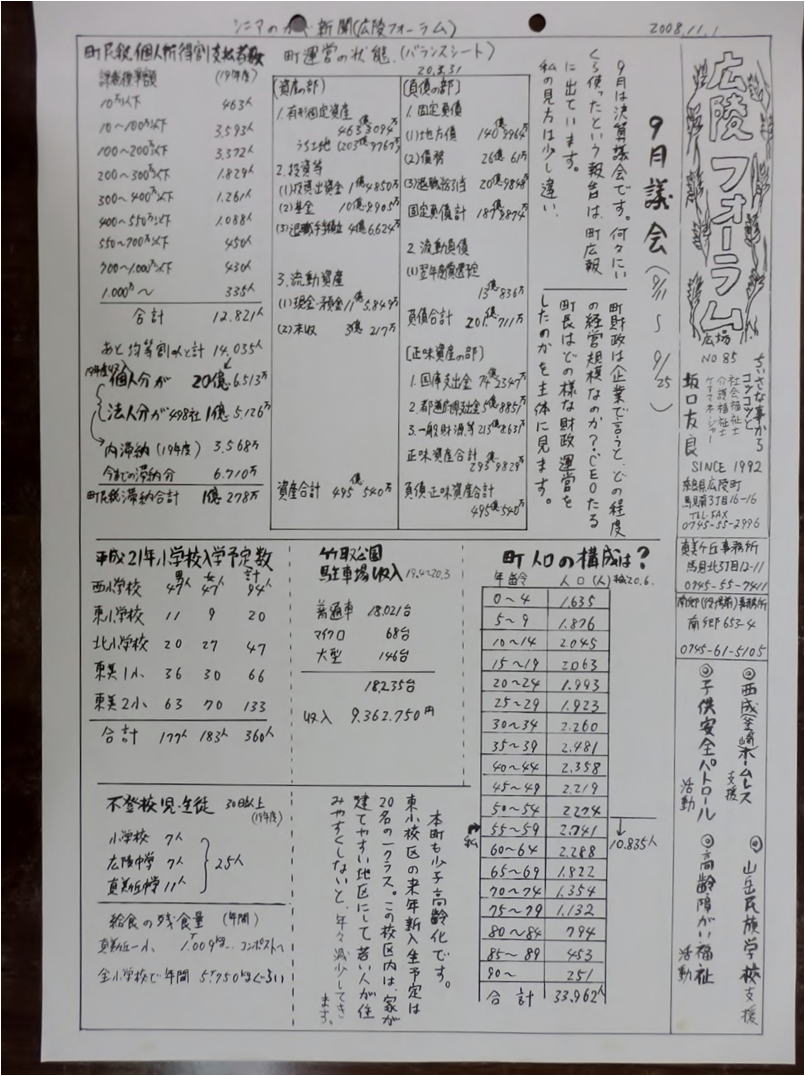 シニアの 新聞(広陵フォーラム)
2008.11.1
広陵フォーラム
広場
NO 85
ちいさな事から
コツコツと
社会福祉士
介護福祉士
ケアマネージャー
坂口友良
SINCE 1992
奈良県広陵町
馬見南3丁目16-16
TEL.FAX
0745-55-2996
真美ケ丘事務所
馬見北3丁目12-11
0745-55-7411
南郷(役場前)事務所
南郷653-4
0745-61-5105
◎西成(釜ヶ崎)ホームレス支援
◎子供安全パトロール活動
◎山岳民族学校支援
◎高齢障がい福祉活動
9月議会(9/11〜9/25)
9月は決算議会です。何々にい
くら使ったという報告は、町広報
に出ています。
私の見方は少し違い、
町財政は企業で言うと、どの程度
の経営規模なのか?CEOたる
町長はどの様な財政運営を
したのかを主体に見ます。
町民税個人所得割支払者数
課税標準額 (19年度)
10万以下 463人
10〜100万以下 3.593人
100〜200万以下 3.372人
200〜300万以下 1.829人
300〜400万以下 1.261人
400〜550万以下 1.088人
550〜700万以下 450人
700〜1.000万以下 430人
1.000万〜 335人
合計 12.821人
あと均等割人と計 14.035人
個人分が 20億.6.513万
法人分が498社 1億.5.126万
内滞納(19年度) 3.568万
今までの滞納分 6.710万
町民税滞納合計 1億278万
町運営の状態(バランスシート)
20.3.31
[資産の部]
1.有形固定資産
463億3094万
うち土地(203億9767万)
2.投資等
(1)投資出資金 1億4850万
(2)基金 10億8905万
(3)退職手当組合 4億6624万
3.流動資産
(1)現金・預金 11億5849万
(2)未収 3億217万
資産合計 495億540万
[負債の部]
1.固定負債
(1)地方債 140億8964万
(2)債務 26億61万
(3)退職給与引当 20億9848万
固定負債計 187億8874万
2.流動負債
(1)翌年度償還予定
13億836万
負債合計 201億711万
[正味資産の部]
1.国庫支出金 74億2347万
2.都道府県支出金 5億8851万
3.一般財源等 213億8631万
正味資産合計
293億9829万
負債・正味資産合計
495億540万
平成21年小学校入学予定数
男 女 計
西小学校 47人 47人 94人
東小学校 11 9 20
北小学校 20 27 47
真美1小 36 30 66
真美2小 63 70 133
合計 177人 183人 360人
竹取公園
駐車場収入 19.4〜20.3
普通車 18.021台
マイクロ 68台
大型 146台
18,235台
収入 9.362.750円
町人口の構成は?
年齢 人口(人) 20.6.
0〜4 1.635
5〜9 1.876
10〜14 2.045
15〜19 2063
20〜24 1.993
25〜29 1.923
30〜34 2.260
35〜39 2.481
40〜44 2.358
45〜49 2.219
50〜54 2274
55〜59 2.741
私
60〜64 2.288
65〜69 1.822
70〜74 1.354
75〜79 1.132
80〜84 794
85〜89 453
90〜 251
合計 33.962人
10.835人
不登校児・生徒 30日以上
(19年度)
小学校 7人
広陵中学 7人
真美ケ丘中学 11人
25人
給食の残食量 (年間)
真美ケ丘一小 1.009kg… コンポストへ
全小学校で年間 5T750kgぐらい
本町も少子高齢化です。
東小校区の来年新入生予定は
20名の一クラス。この校区内は、家が
建てやすい地区にして若い人が住
みやすくしないと、年々減少してき
ます。